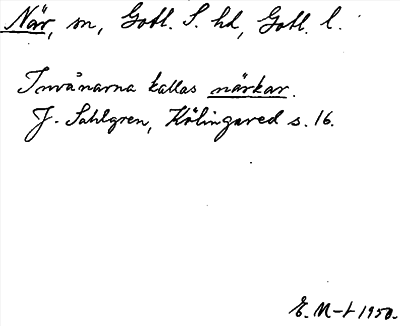 När, sn, Gotl. S. hd, Gotl. l.
Invånarna kallas närkar.
J. Sahlgren, Kölingared s. 16.
E. M-t 1950.